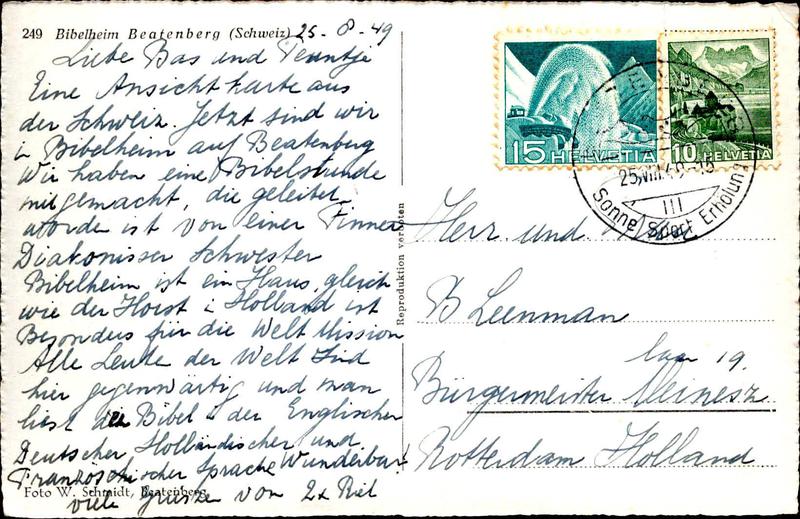 249 Bibelheim Beatenberg (Schweiz) 25-8-49
Liebe Bas und Teuntje
Eine Ansichtkarte aus
der Schweiz. Jetzt sind wir
in Bibelheim auf Beatenberg
Wir haben eine Bibelstunde
mitgemacht, die geleitet
worde ist von einer Finner
Diakonisser Schwester
Bibelheim ist ein Haus, gleich
wie der Horst i Holland ist
Besonders für die Welt Mission
Alle Leute der Welt Sind
hier gegenwärtig und man
liest die Bibel i der Englischer
Deutscher Holländischer und
Französchischer Sprache Wunderbar!
viele Grüsze von 2x Riel
Foto W. Schmidt, Beatenberg
Reproduktion verboten
15 HELVETIA
10 HELVETIA
25.VIII.49-18
III
Sonne Sport Erholung
Herr und
B Leenman
laan 19.
Bürgermeister Meinesz
Rotterdam Holland